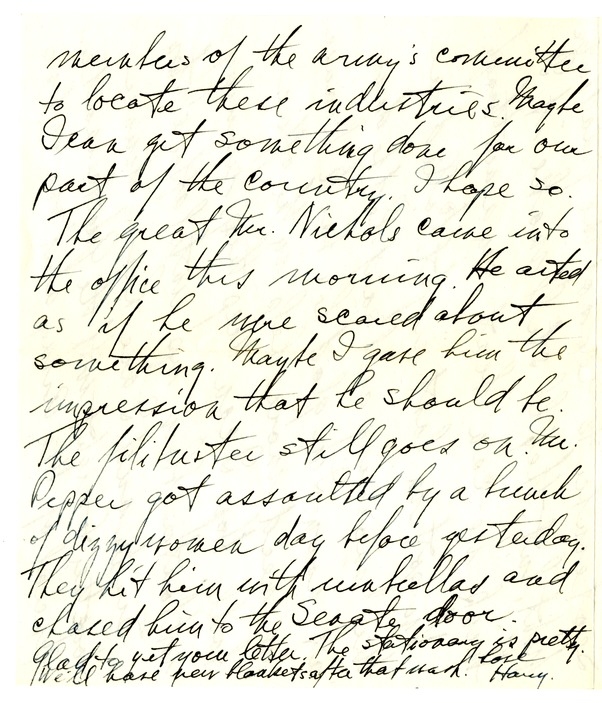 members of the army's committee
to locate these industries. Maybe
I can get something done for our
part of the country. I hope so.
The great Mr. Nichols came into
the office this morning. He acted
as if he were scared about
something. Maybe I gave him the
impression that he should be.
The filibuster still goes on. Mr.
Pepper got assaulted by a bunch
of dizzy women day before yesterday.
They hit him with umbrellas and
chased him to the Senate door.
Glad to get your letter. The stationary is pretty.
We'll have new blankets after that wash. Love
Harry.